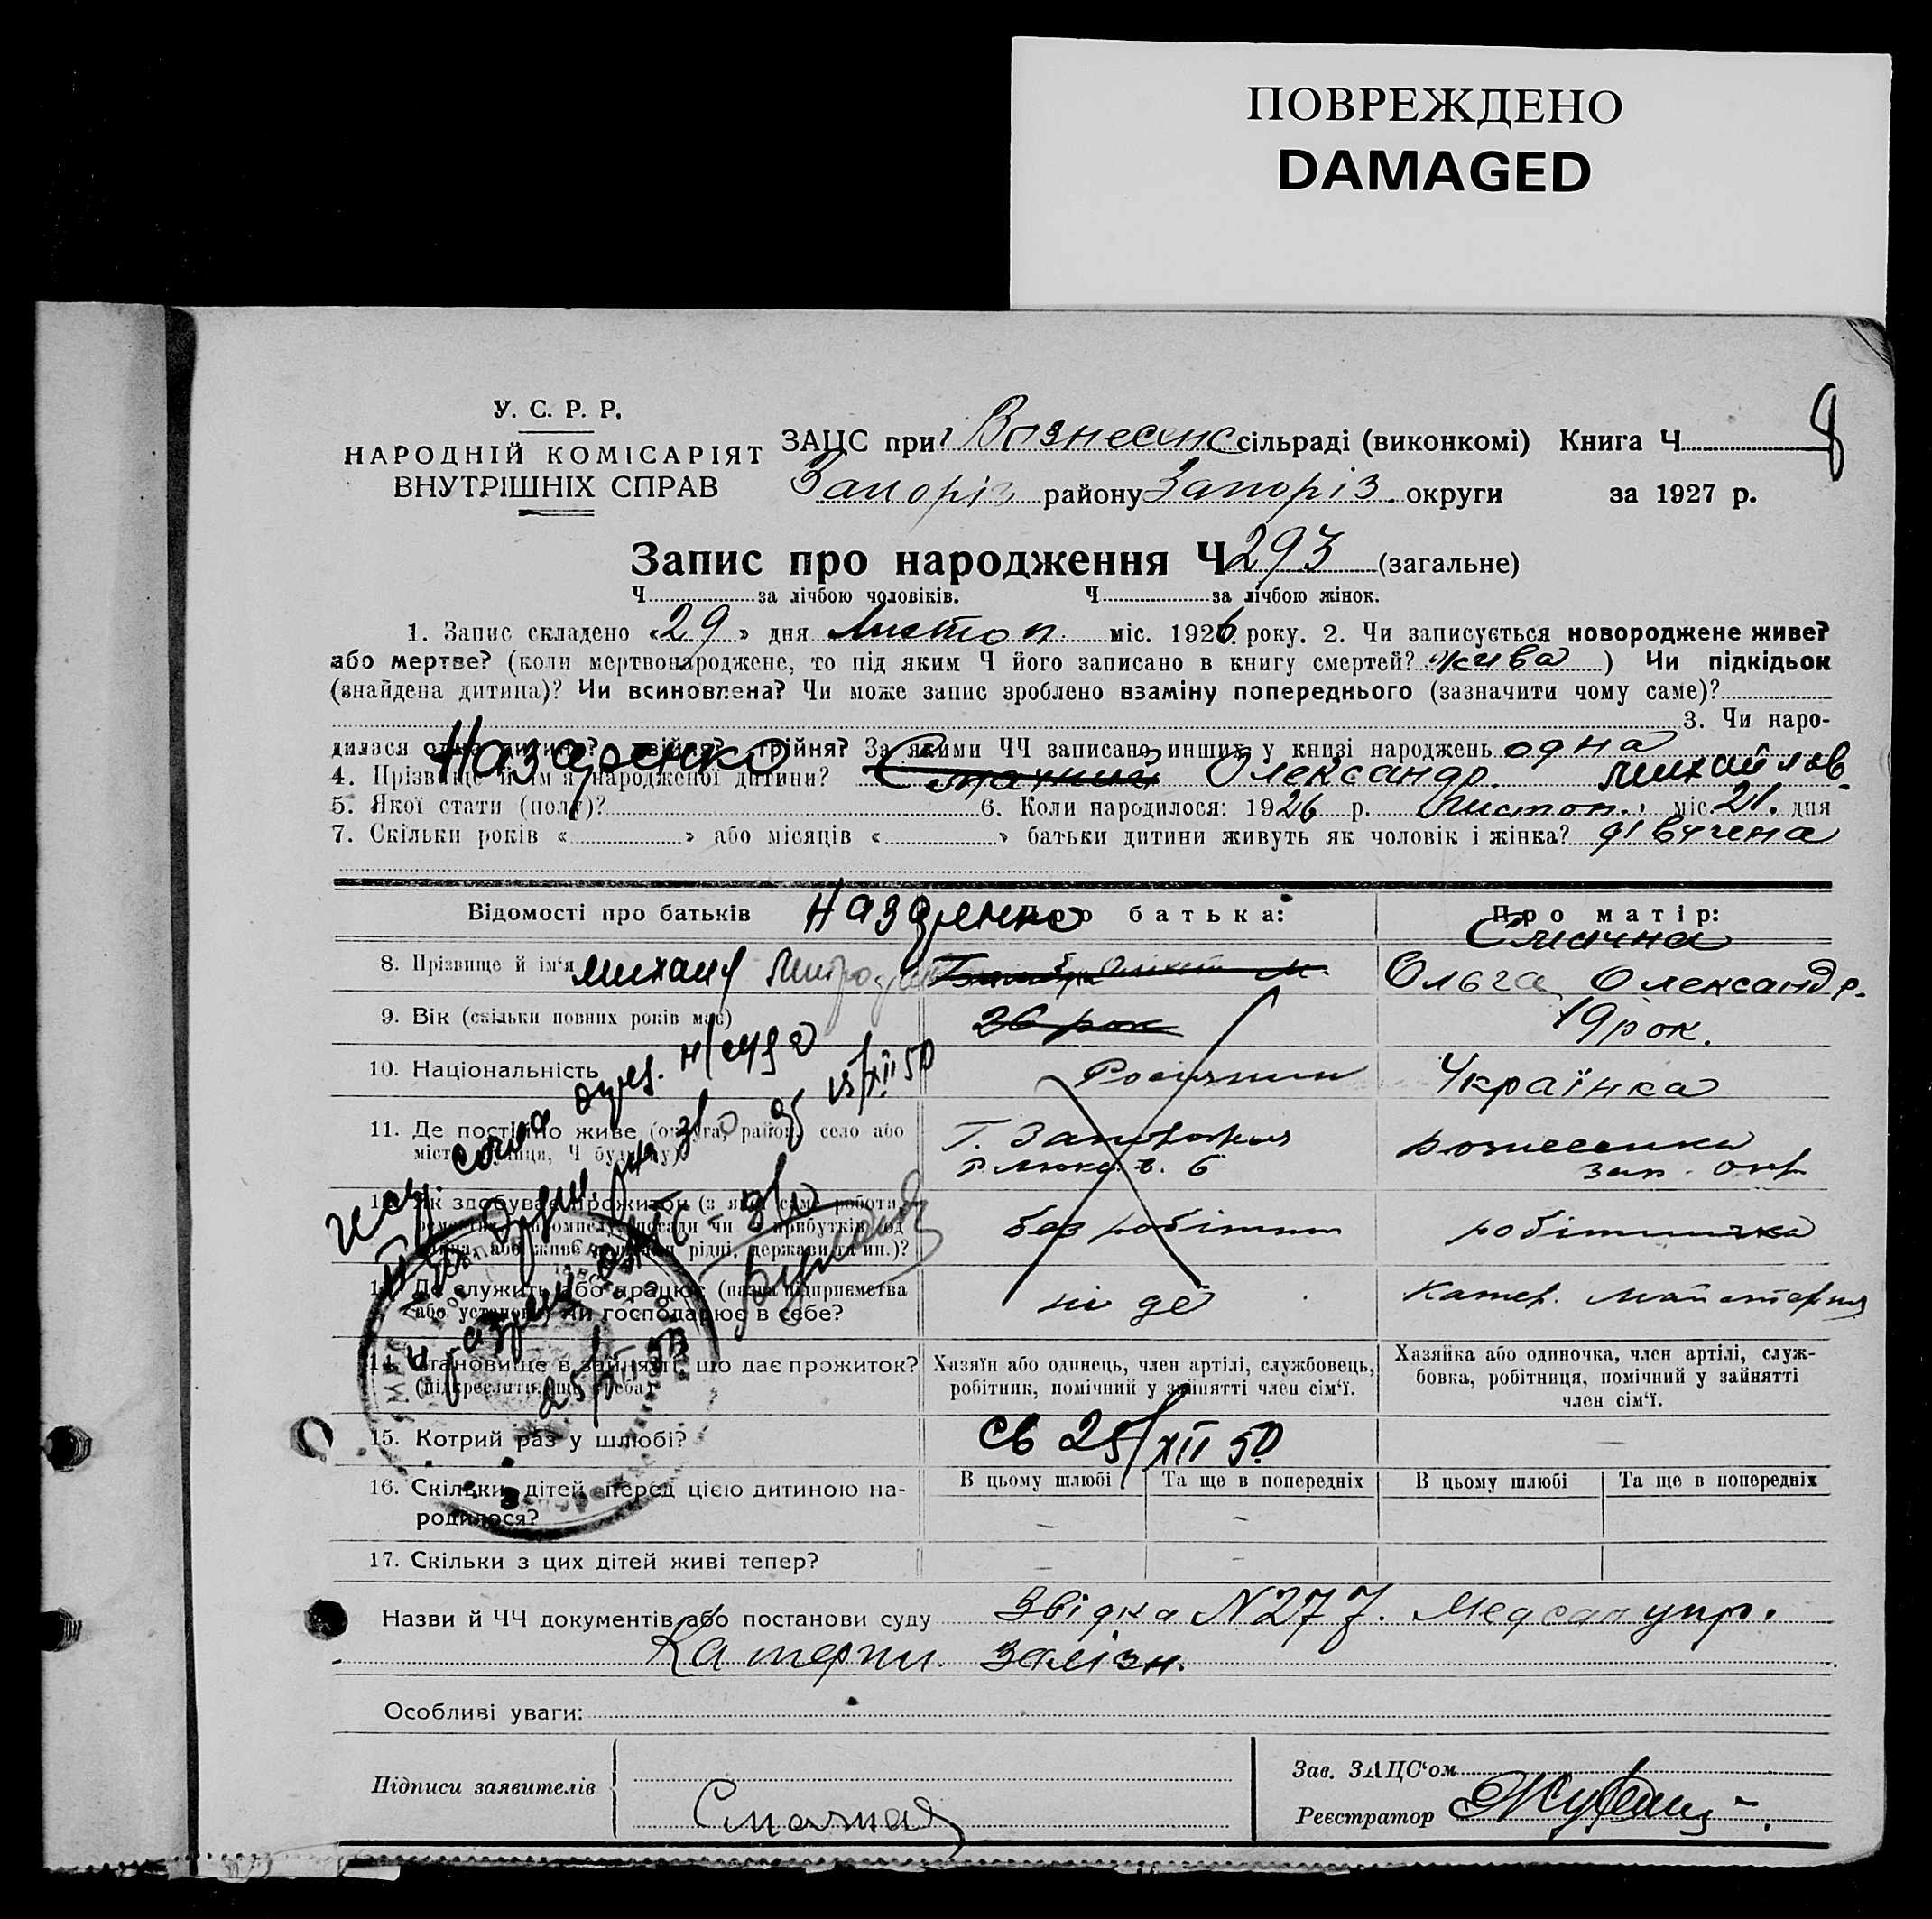 ПОВРЕЖДЕНО
DAMAGED
У. С. Р. Р.
НАРОДНІЙ КОМІСАРІЯТ
ВНУТРІШНІХ СПРАВ
ЗАЦС при Вознесенс сільраді (виконкомі) Книга Ч 8
Запоріз району Запоріз. округи за 1927 р.
Запис про народження Ч 293 (загальне)
Ч за лічбою чоловіків. Ч за лічбою жінок.
1. Запис складено «29» дня Листоп. міс. 1926 року. 2. Чи записується новороджене живе?
або мертве? (коли мертвонароджене, то під яким Ч його записано в книгу смертей? жива) Чи підкідьок
(знайдена дитина)? Чи всиновлена? Чи може запис зроблено взаміну попереднього (зазначити чому саме)?
3. Чи наро-
дилася одна дитина? двійня? трійня? За якими ЧЧ записано инших у книзі народжень одна
Назаренко
4. Прізвище й ім'я народженої дитини? Смачний Олександр. Михайлов.
5. Якої стати (полу)? 6. Коли народилося: 1926 р. Листоп. міс. 21. дня
7. Скільки років « » або місяців « » батьки дитини живуть як чоловік і жінка? дівчена
Відомості про батьків Про батька: Про матір:
Назаренко Смачна
8. Прізвище й ім'я Михаил Ольга Олександр.
9. Вік (скільки повних років має) 26 рок 19 рок.
10. Національність Росіянин Українка
11. Де постійно живе (округа, район, село або
місто, вулиця, Ч будинку) Г. Запоріжжя Вознесенка
Зап. окр.
12. Як здобуває прожиток (з якої саме роботи,
ремества, промислу, посади чи з прибутків од
майна, або живе на кошти рідні, держави та ин.)? без робітни робітничка
13. Де служить або працює (назва підприємства
або установи) чи господарює в себе? ні де Катер. майстерня
14. Становище в зайнятті, що дає прожиток?
(підкреслити, що треба)
Хазяїн або одинець, член артілі, службовець,
робітник, помічний у зайнятті член сім'ї.
Хазяйка або одиночка, член артілі, служ-
бовка, робітниця, помічний у зайнятті
член сім'ї.
15. Котрий раз у шлюбі? св 25/XII 50
В цьому шлюбі Та ще в попередніх В цьому шлюбі Та ще в попередніх
16. Скільки дітей перед цією дитиною на-
родилося?
17. Скільки з цих дітей живі тепер?
Назви й ЧЧ документів або постанови суду Звідка N 277. Медсан упр.
Катерин. Залізн.
Особливі уваги:
Підписи заявителів Смачная
Зав. ЗАЦС'ом
Реєстратор